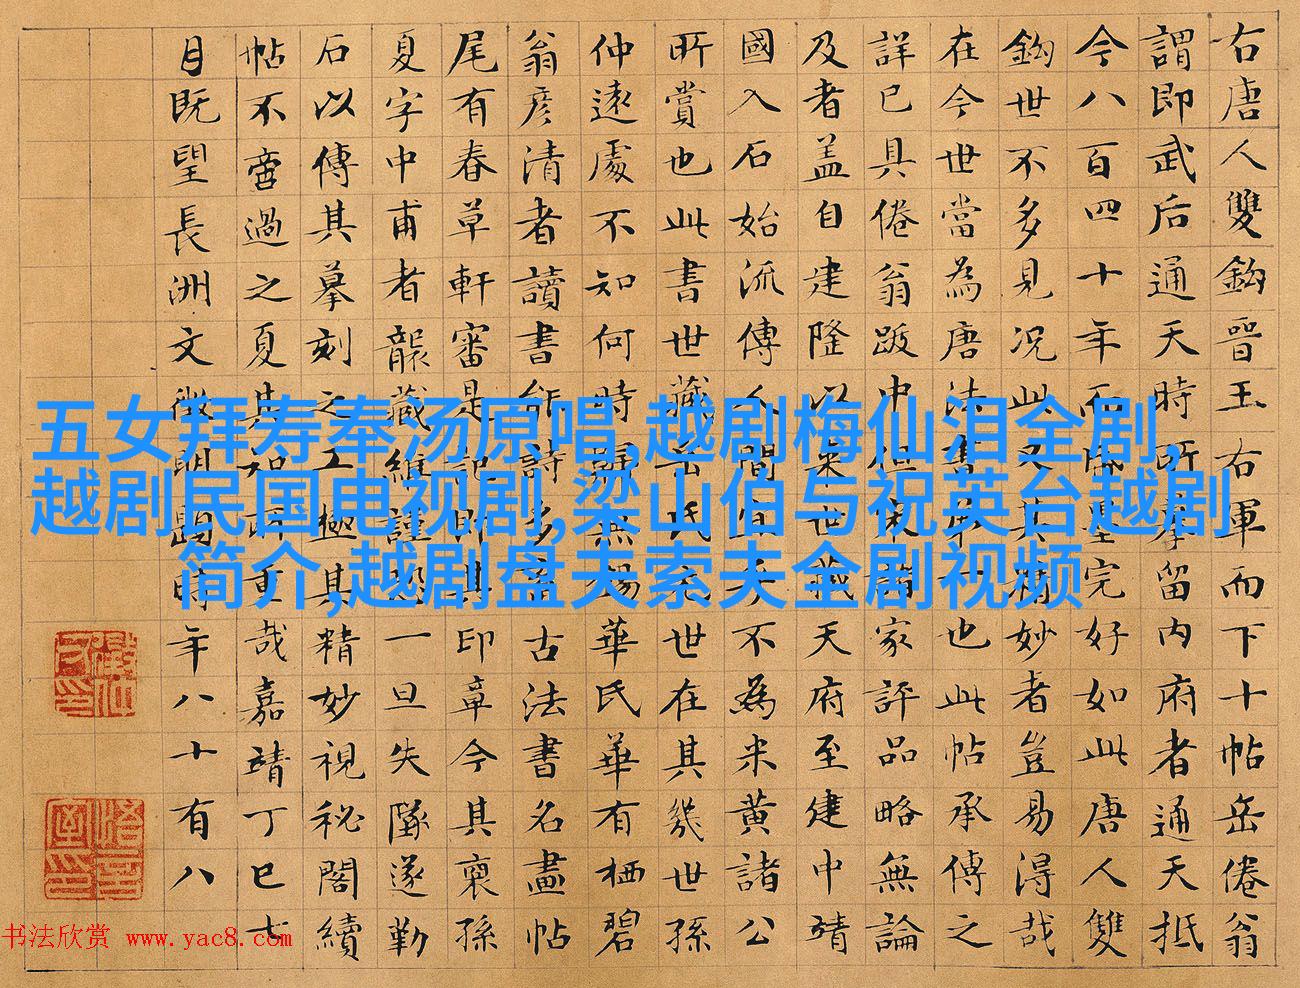 右唐人雙鈎晉王右軍而下十帖岳倦翁
謂即武后通天時所摹留內府者通天抵
今八百四十年而紙墨完好如此唐人雙
鈎世不多見况此又其精妙者豈易得哉
在今世當為唐法書第一也此帖承傳之
詳已具倦翁跋中但家評品略無論
及者盖自建隆以來世藏天府至建中靖
國入石始流傳人間宜乎不為米黃諸公
所賞也此書世藏岳氏元世在其幾世孫
仲遠處不知何時歸無錫華氏華有栖碧
翁彦清者讀書能詩多蓄古法書名畫帖
尾有春草軒審是記即其印章今其裔孫
夏字中甫者襲藏維謹恐一旦失墜遂勒
石以傳其摹刻之工極其精妙視秘閣續
帖不啻過之夏其知所重哉嘉靖丁巳七
月既望長洲文徵明題時年八十有八
五女拜寿奉汤原唱,越剧梅仙泪全剧,
越剧民国电视剧,梁山伯与祝英台越剧
简介,越剧盘夫索夫全剧视频
书法欣赏 www.yac8.com